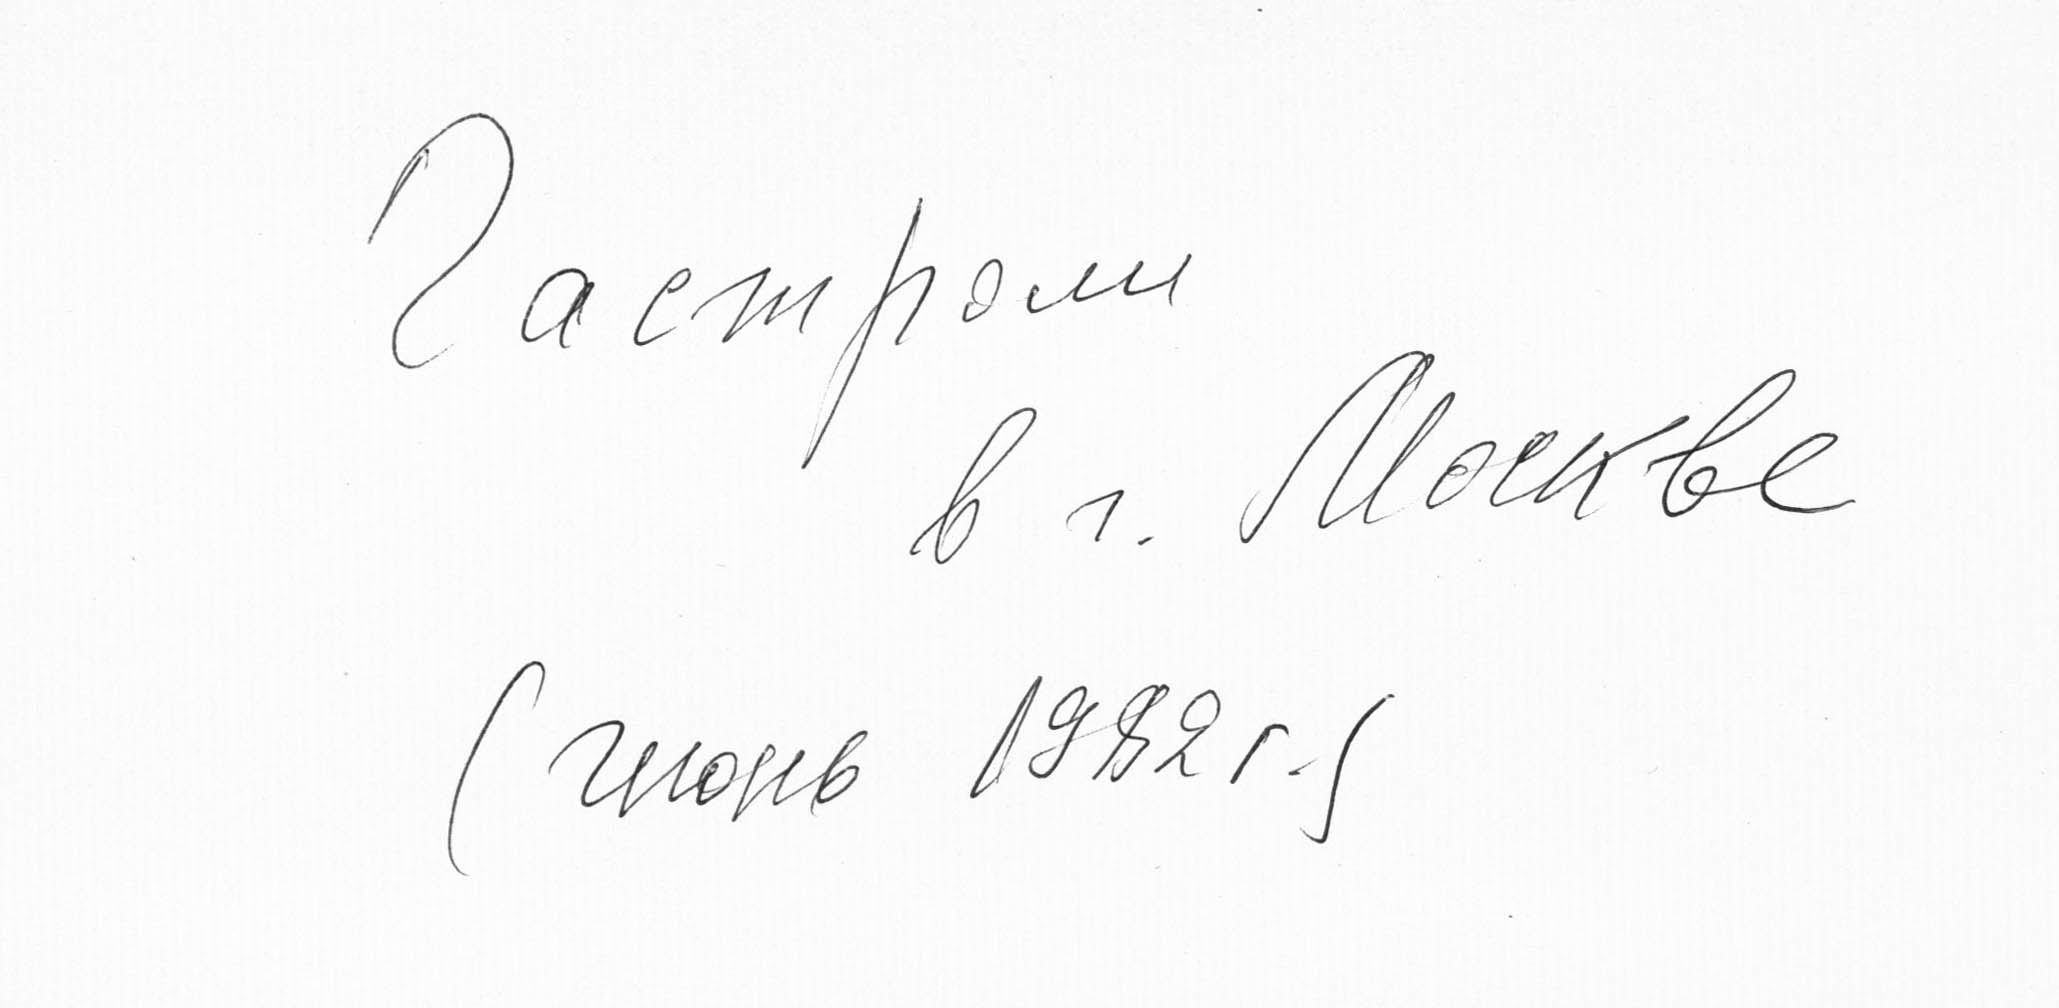 Гастроли
в г. Москве
(июнь 1982 г.)